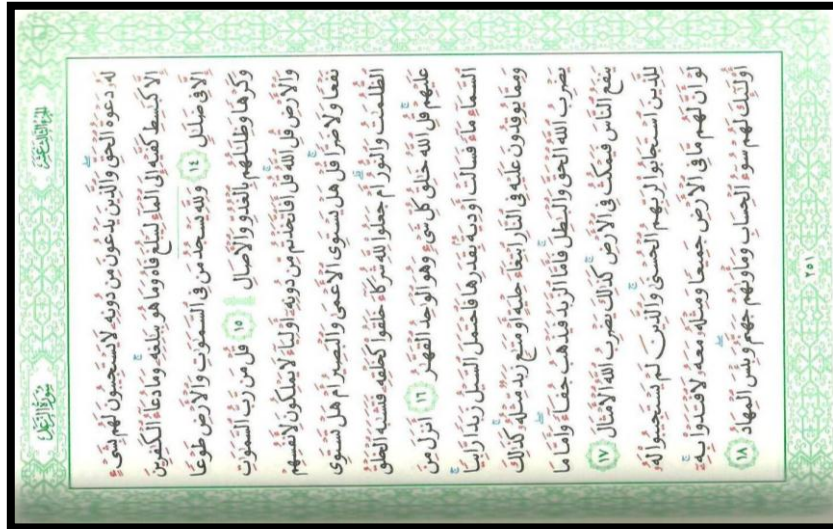 سُورَةُ الرَّعْدِ
الجُزْءُ الثَّالِثَ عَشَرَ
لَهُۥ دَعْوَةُ ٱلْحَقِّ وَٱلَّذِينَ يَدْعُونَ مِن دُونِهِۦ لَا يَسْتَجِيبُونَ لَهُم بِشَىْءٍ
إِلَّا كَبَٰسِطِ كَفَّيْهِ إِلَى ٱلْمَآءِ لِيَبْلُغَ فَاهُ وَمَا هُوَ بِبَٰلِغِهِۦ وَمَا دُعَآءُ ٱلْكَٰفِرِينَ
إِلَّا فِى ضَلَٰلٍ ١٤ وَلِلَّهِ يَسْجُدُ مَن فِى ٱلسَّمَٰوَٰتِ وَٱلْأَرْضِ طَوْعًا
وَكَرْهًا وَظِلَٰلُهُم بِٱلْغُدُوِّ وَٱلْءَاصَالِ ١٥ قُلْ مَن رَّبُّ ٱلسَّمَٰوَٰتِ
وَٱلْأَرْضِ قُلِ ٱللَّهُ قُلْ أَفَٱتَّخَذْتُم مِّن دُونِهِۦٓ أَوْلِيَآءَ لَا يَمْلِكُونَ لِأَنفُسِهِمْ
نَفْعًا وَلَا ضَرًّا قُلْ هَلْ يَسْتَوِى ٱلْأَعْمَىٰ وَٱلْبَصِيرُ أَمْ هَلْ تَسْتَوِى
ٱلظُّلُمَٰتُ وَٱلنُّورُ أَمْ جَعَلُوا۟ لِلَّهِ شُرَكَآءَ خَلَقُوا۟ كَخَلْقِهِۦ فَتَشَٰبَهَ ٱلْخَلْقُ
عَلَيْهِمْ قُلِ ٱللَّهُ خَٰلِقُ كُلِّ شَىْءٍ وَهُوَ ٱلْوَٰحِدُ ٱلْقَهَّٰرُ ١٦ أَنزَلَ مِنَ
ٱلسَّمَآءِ مَآءً فَسَالَتْ أَوْدِيَةٌۢ بِقَدَرِهَا فَٱحْتَمَلَ ٱلسَّيْلُ زَبَدًا رَّابِيًا
وَمِمَّا يُوقِدُونَ عَلَيْهِ فِى ٱلنَّارِ ٱبْتِغَآءَ حِلْيَةٍ أَوْ مَتَٰعٍ زَبَدٌ مِّثْلُهُۥ كَذَٰلِكَ
يَضْرِبُ ٱللَّهُ ٱلْحَقَّ وَٱلْبَٰطِلَ فَأَمَّا ٱلزَّبَدُ فَيَذْهَبُ جُفَآءً وَأَمَّا مَا
يَنفَعُ ٱلنَّاسَ فَيَمْكُثُ فِى ٱلْأَرْضِ كَذَٰلِكَ يَضْرِبُ ٱللَّهُ ٱلْأَمْثَالَ ١٧
لِلَّذِينَ ٱسْتَجَابُوا۟ لِرَبِّهِمُ ٱلْحُسْنَىٰ وَٱلَّذِينَ لَمْ يَسْتَجِيبُوا۟ لَهُۥ
لَوْ أَنَّ لَهُم مَّا فِى ٱلْأَرْضِ جَمِيعًا وَمِثْلَهُۥ مَعَهُۥ لَٱفْتَدَوْا۟ بِهِۦٓ
أُو۟لَٰٓئِكَ لَهُمْ سُوٓءُ ٱلْحِسَابِ وَمَأْوَىٰهُمْ جَهَنَّمُ وَبِئْسَ ٱلْمِهَادُ ١٨
٢٥١